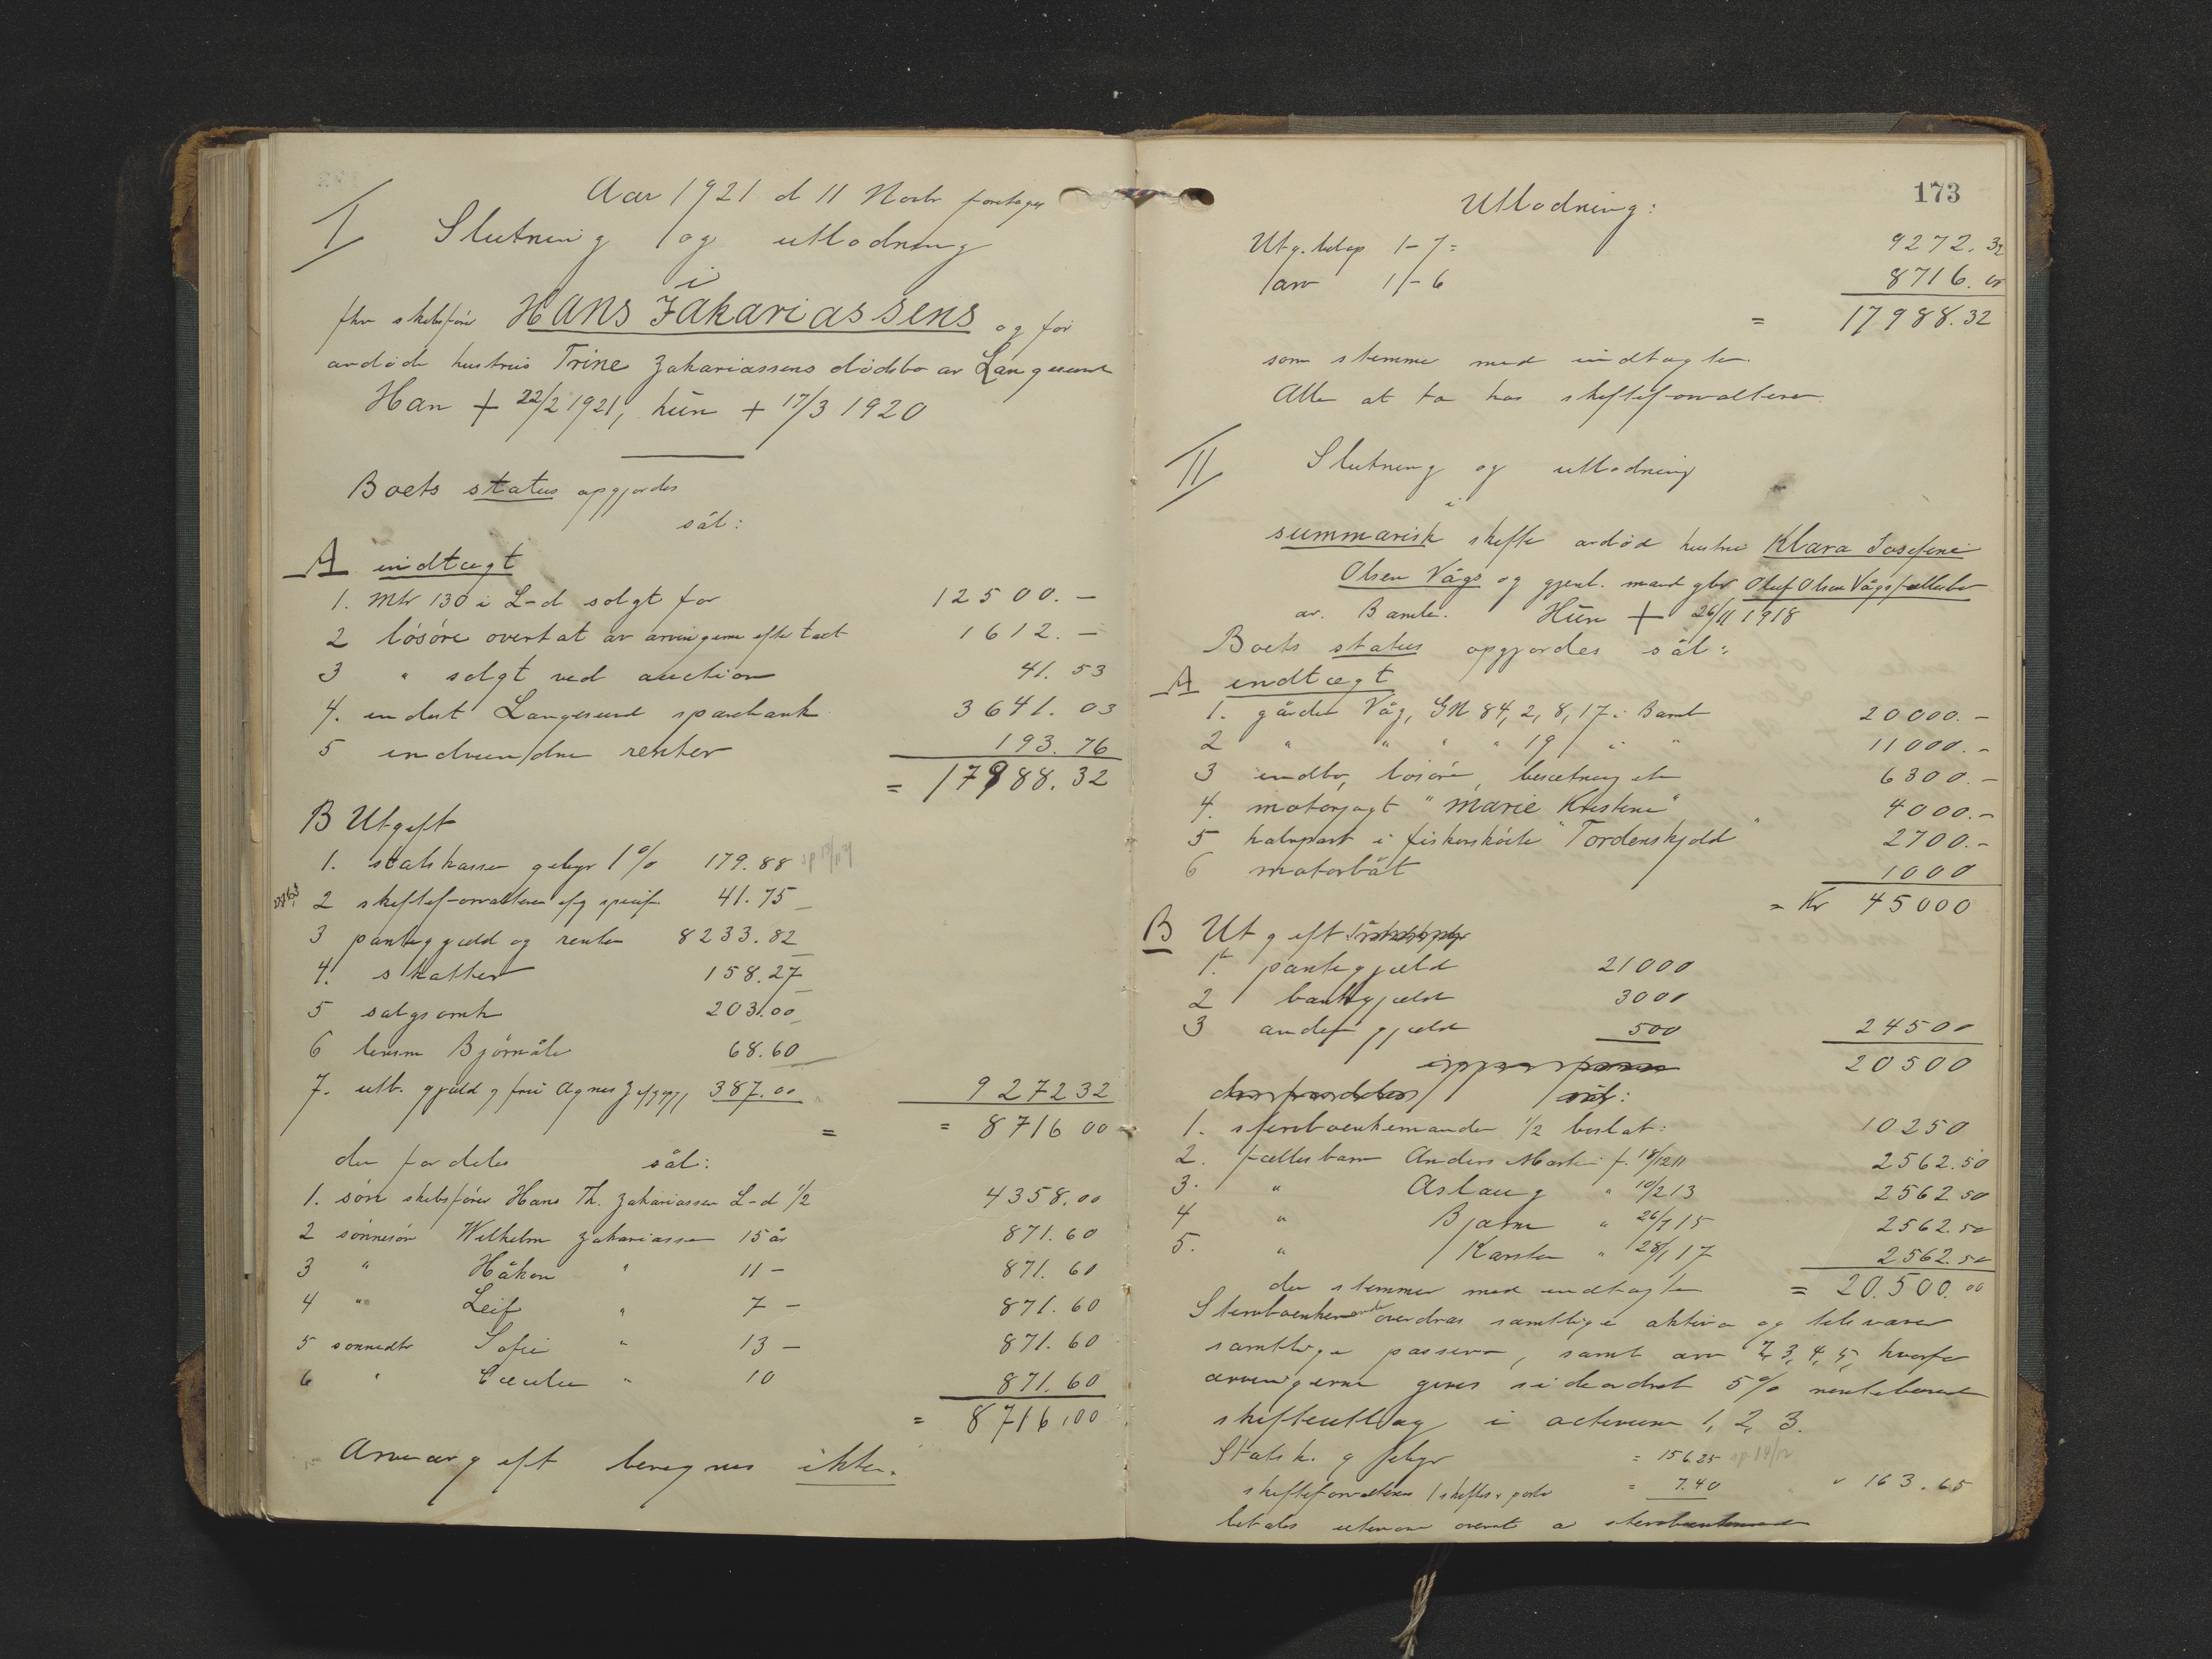 Aar 1921 d 11 Novbr foretages
I Slutning og utlodning
i
fhv skibsfører Hans Zakariassens og før
avdøde hustrus Trine Zakariassens dødsbo av Langesund
Han + 22/2 1921, hun + 17/3 1920
Boets status opgjordes
sål:
A indtægt
1. Mtr 130 i L-d solgt for 12500.-
2 løsøre overtat av arvingerne efter taxt 1612.-
3 " solgt ved auction 41.53
4. indest Langesund sparebank 3641.03
5 indvundne renter 193.76
= 17988.32
B Utgift
1. statskassen gebyr 1% 179.88
2 skifteforvalteren efg specif 41.75
3 pantegjæld og renter 8233.82
4. skatter 158.27
5 salgsomk 203.00
6 lensm Bjørnåle 68.60
7. utb. gjæld g frú Agnes Z 387.00 927232
= = 8716 00
der fordeles sål:
1. søn skibsfører Hans Th. Zakariassen L-d 1/2 4358.00
2 sønnesøn Wilhelm Zakariassen 15 år 871.60
3 " Håkon " 11 - 871.60
4 " Leif " 7 - 871.60
5 sønnedtr Sofie " 13 - 871.60
6 " Cecilie " 10 871.60
= 8716,00
Arveavgift beregnes ikke.
173
Utlodning:
Utg. beløp 1-7 = 9272.32
arv 1-6 8716.00
= 17988.32
som stemmer med indtægten.
Alle at ta hos skifteforvalteren.
II Slutning og utlodning
i
summarisk skifte avdød hustru Klara Josefine
Olsen Vågs og gjenl. mand gbr Oluf Olsen Vågs fællesbo
av Bamle. Hun + 26/11 1918
Boets status opgjordes sål:
A indtægt
1. gården Våg, GN 84, 2, 8, 17 i Bamle 20000.-
2 " " " " 19 i " 11000.-
3 indbo, løsøre, besætning etc 6300.-
4. motorjagt "Marie Kristine" 4000.-
5 halvpart i fiskerskøite "Tordenskjold" 2700.-
6 motorbåt 1000
= Kr 45000
B Utgift
1. pantegjæld 21000
2 bankgjæld 3000
3 anden gjæld 500 24500
20500
sål:
1. sterboenkemanden 1/2 boslot: 10250
2. fællesbarn Anders Martin f. 18/12 11 2562.50
3. " Aslaug " 10/2 13 2562 50
4 " Bjarne " 26/7 15 2562.50
5. " Karsten " 28/1 17 2562.50
der stemmer med indtægten = 20.500.00
Sterboenkemanden overdras samtlige aktiva og tilsvarer
samtlige passiva, samt arv 2, 3, 4, 5, hvorfor
arvingerne gives sideordnet 5% rentebærende
skifteutlæg i activum 1, 2, 3.
Statsk. g gebyr = 156.25 sp 14/12
skifteforvalteren = 7.40 163.65
betales utenom av sterboenkemanden